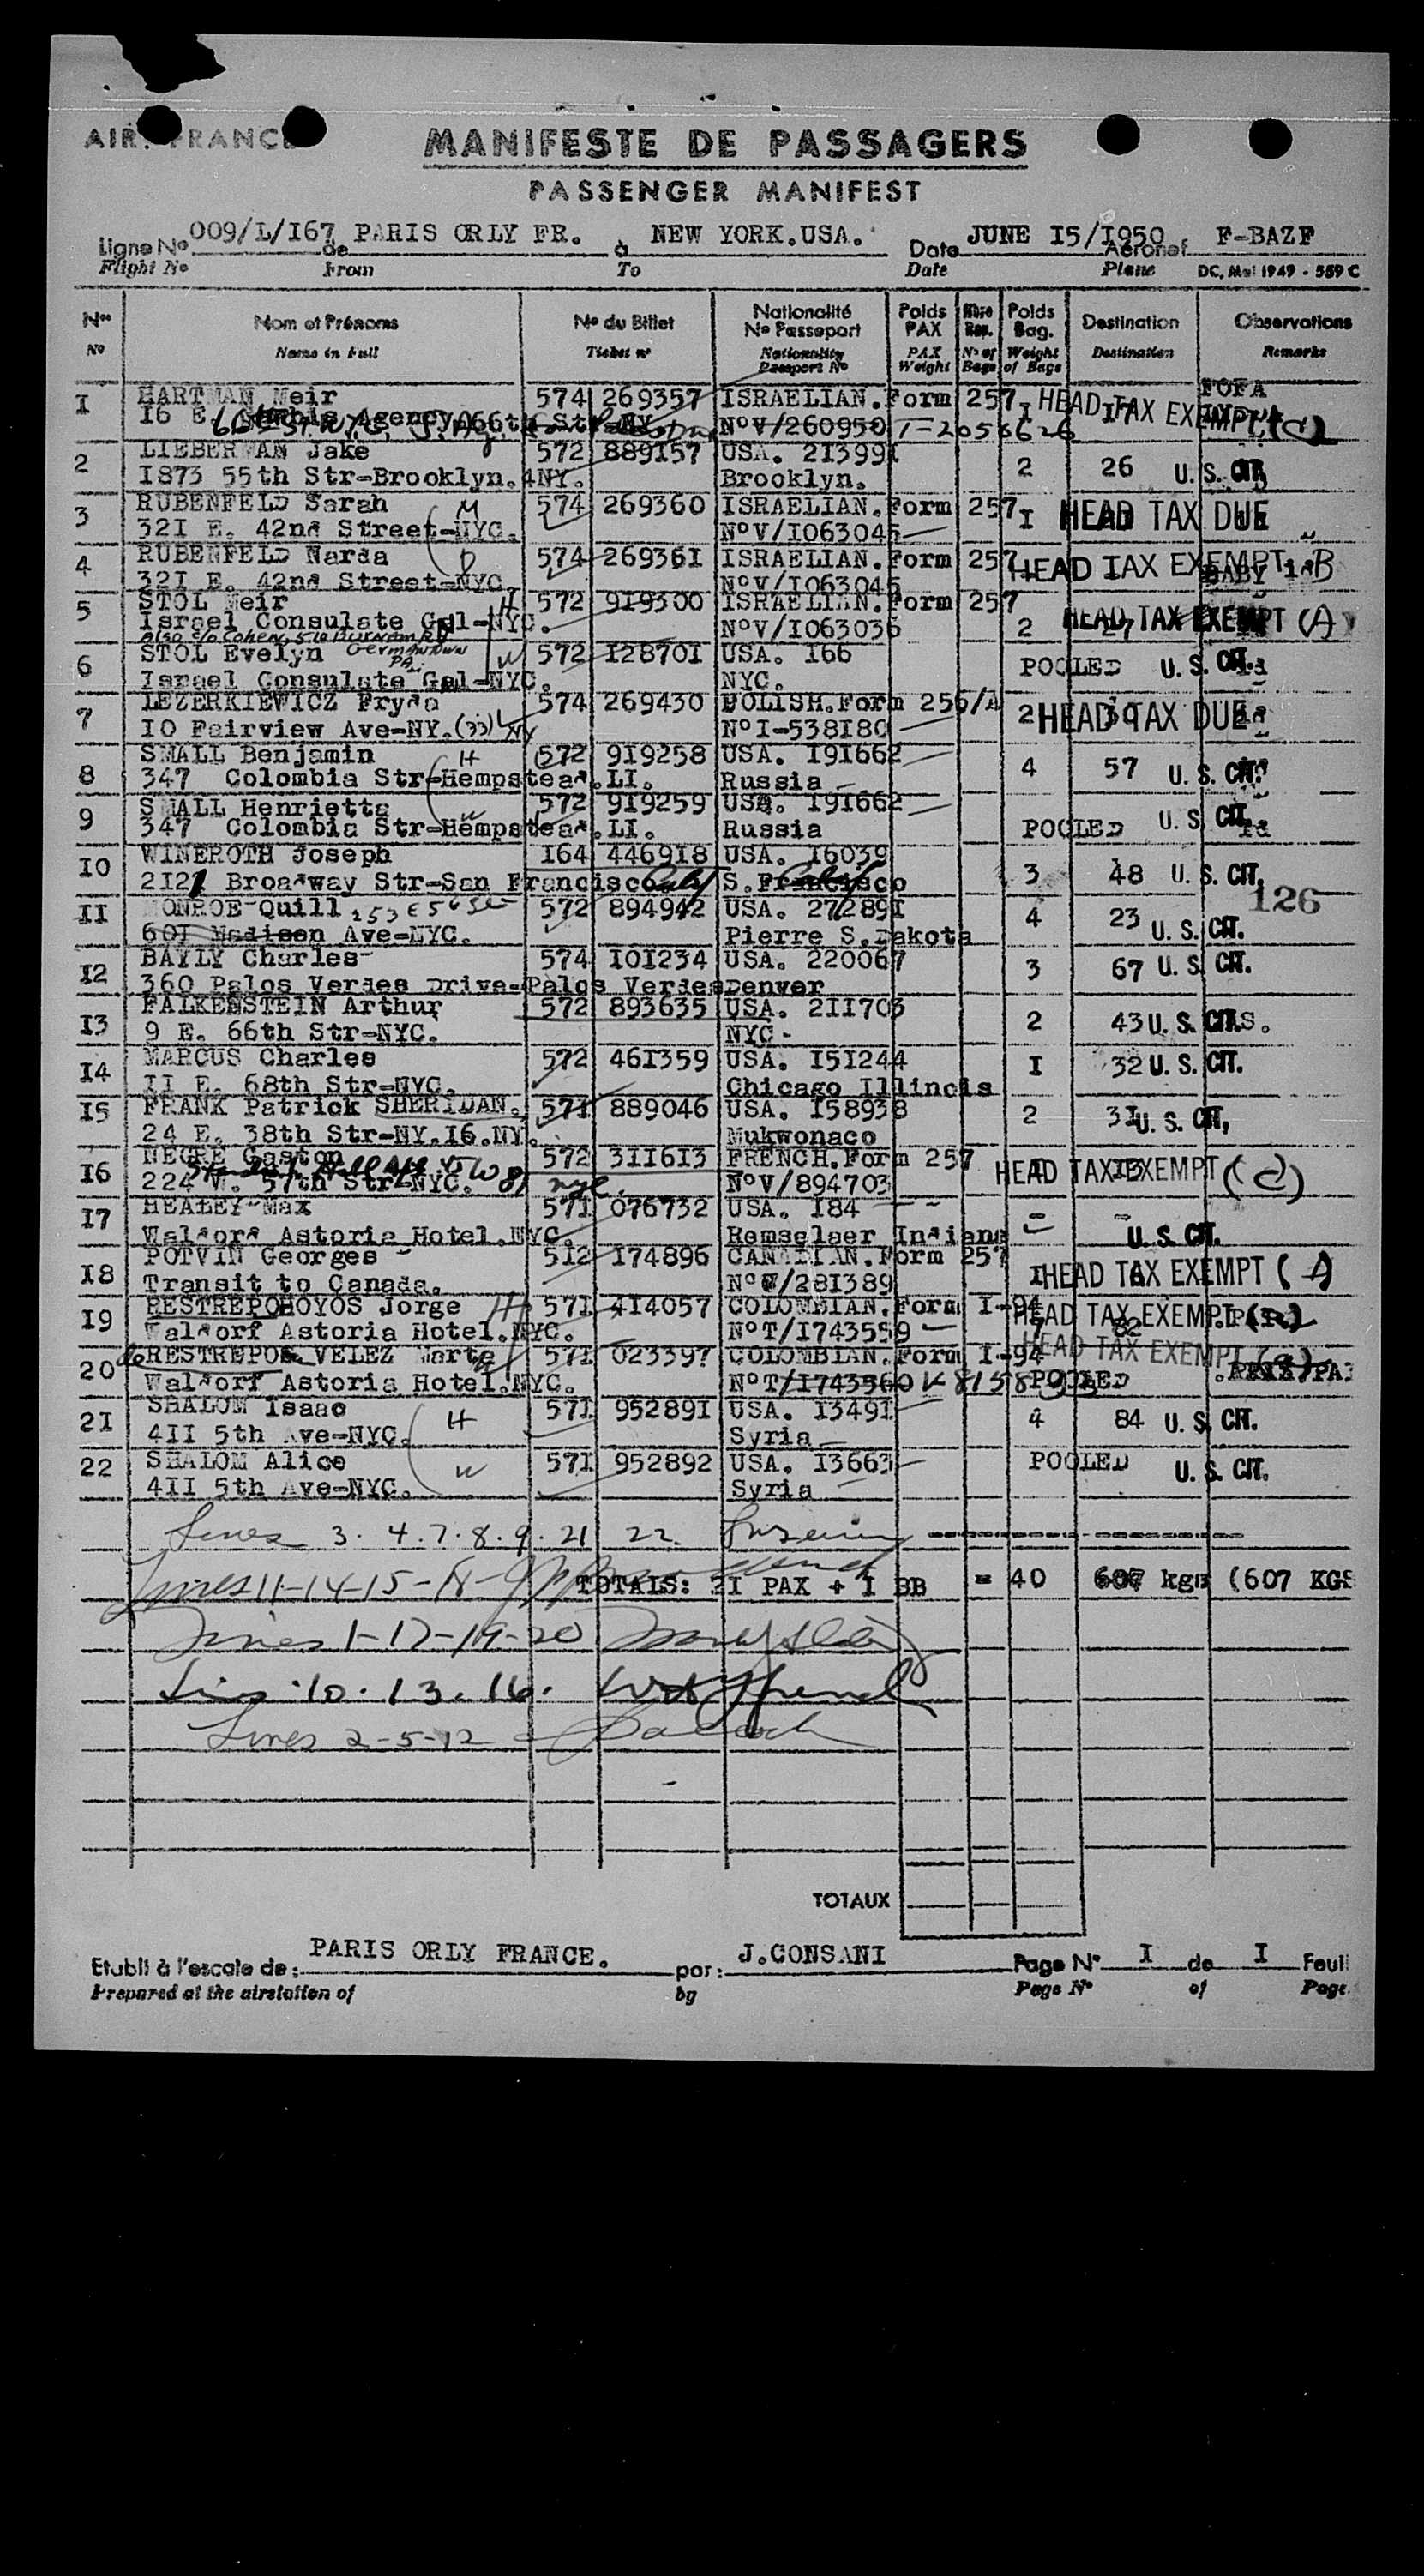 AIR FRANCE
MANIFESTE DE PASSAGERS
PASSENGER MANIFEST
Ligne No 009/L/I67 de PARIS ORLY FR. à NEW YORK.USA. Date JUNE I5/I950 Aéronef F-BAZF
Flight No From To Date Plane DC. Mai 1949 - 559 C
Nos Nom et Prénoms No du Billet Nationalité No Passeport Poids PAX Poids Bag. Destination Observations
No Name in Full Ticket no Nationality Passport No PAX Weight No of Bags Weight of Bags Destination Remarks
I HARTMAN Meir 574 269357 ISRAELIAN.Form 257 I HEAD TAX EXEMPT (C) FOFA
I6 E. Agency 66th Str-NY NoV/260950 T-2058626
2 LIEBERMAN Jake 572 889157 USA. 21399I 2 26 U. S. CIT.
I873 55th Str-Brooklyn.4NY. Brooklyn.
3 RUBENFELD Sarah M 574 269360 ISRAELIAN.Form 257 I HEAD TAX DUE
32I E. 42nd Street-NYC. NoV/I063045
4 RUBENFELD Narda D 574 26936I ISRAELIAN.Form 257 HEAD TAX EXEMPT B BABY
32I E. 42nd Street-NYC. NoV/I063045
5 STOL Meir H 572 919300 ISRAELIAN.Form 257 2 27 HEAD TAX EXEMPT (A)
Israel Consulate Gal-NYC. NoV/I063036
Also c/o Cohen, 510 Germantown PA.
6 STOL Evelyn W 572 I2870I USA. I66 POOLED U. S. CIT.
Israel Consulate Gal-NYC. NYC.
7 LEZERKIEWICZ Fryda 574 269430 POLISH.Form 256/A 2 30 HEAD TAX DUE
I0 Fairview Ave-NY.(33) NY NoI-538I80
8 SMALL Benjamin H 572 919258 USA. I9I662 4 57 U. S. CIT.
347 Colombia Str-Hempstead.LI. Russia
9 SMALL Henrietta W 572 919259 USA. I9I662 POOLED U. S. CIT.
347 Colombia Str-Hempstead.LI. Russia
I0 WINEROTH Joseph I64 446918 USA. I6039 3 48 U. S. CIT.
2121 Broadway Str-San Francisco Calif S.Francisco
126
II MONROE Quill 153 E 56 St 572 894942 USA. 27289I 4 23 U. S. CIT.
60I Madison Ave-NYC. Pierre S.Dakota
I2 BAYLY Charles 574 I0I234 USA. 220067 3 67 U. S. CIT.
360 Palos Verdes Drive-Palos Verdes Denver
I3 FALKENSTEIN Arthur 572 893635 USA. 2II703 2 43 U. S. CIT.
9 E. 66th Str-NYC. NYC-
I4 MARCUS Charles 572 46I359 USA. I5I244 I 32 U. S. CIT.
II E. 68th Str-NYC. Chicago Illinois
I5 FRANK Patrick SHERIDAN. 57I 889046 USA. I58938 2 3I U. S. CIT.
24 E. 38th Str-NY.I6.NY. Mukwonaco
I6 NEGRE Gaston 572 3II6I3 FRENCH.Form 257 I I3 HEAD TAX EXEMPT (C)
224 W. 57th Str-NYC. NYC. NoV/894703
I7 HEALEY Max 57I 076732 USA. I84 - - U. S. CIT.
Waldorf Astoria Hotel.NYC. Remselaer Indiana
I8 POTVIN Georges 5I2 I74896 CANADIAN.Form 257 I HEAD TAX EXEMPT (A)
Transit to Canada. NoV/28I389
I9 RESTREPO HOYOS Jorge H 57I 4I4057 COLOMBIAN.Form I-94 7 82 HEAD TAX EXEMPT
Waldorf Astoria Hotel.NYC. NoT/I743559
20 de RESTREPO VELEZ Marta W 57I 023397 COLOMBIAN.Form I-94 HEAD TAX EXEMPT
Waldorf Astoria Hotel.NYC. NoT/I743560 POOLED
2I SHALOM Isaac H 57I 95289I USA. I349I 4 84 U. S. CIT.
4II 5th Ave-NYC. Syria
22 SHALOM Alice W 57I 952892 USA. I3663 POOLED U. S. CIT.
4II 5th Ave-NYC. Syria
Lines 3. 4. 7. 8. 9. 21 22.
Lines 11-14-15-18- TOTALS: 2I PAX + I BB = 40 607 kgs (607 KGS
Lines 1-17-19-20
Lines 10. 13. 16.
Lines 2-5-12
TOTAUX
Etabli à l'escale de: PARIS ORLY FRANCE. par: J.CONSANI Page No I de I Feuil
Prepared at the airstation of by Page No of Page